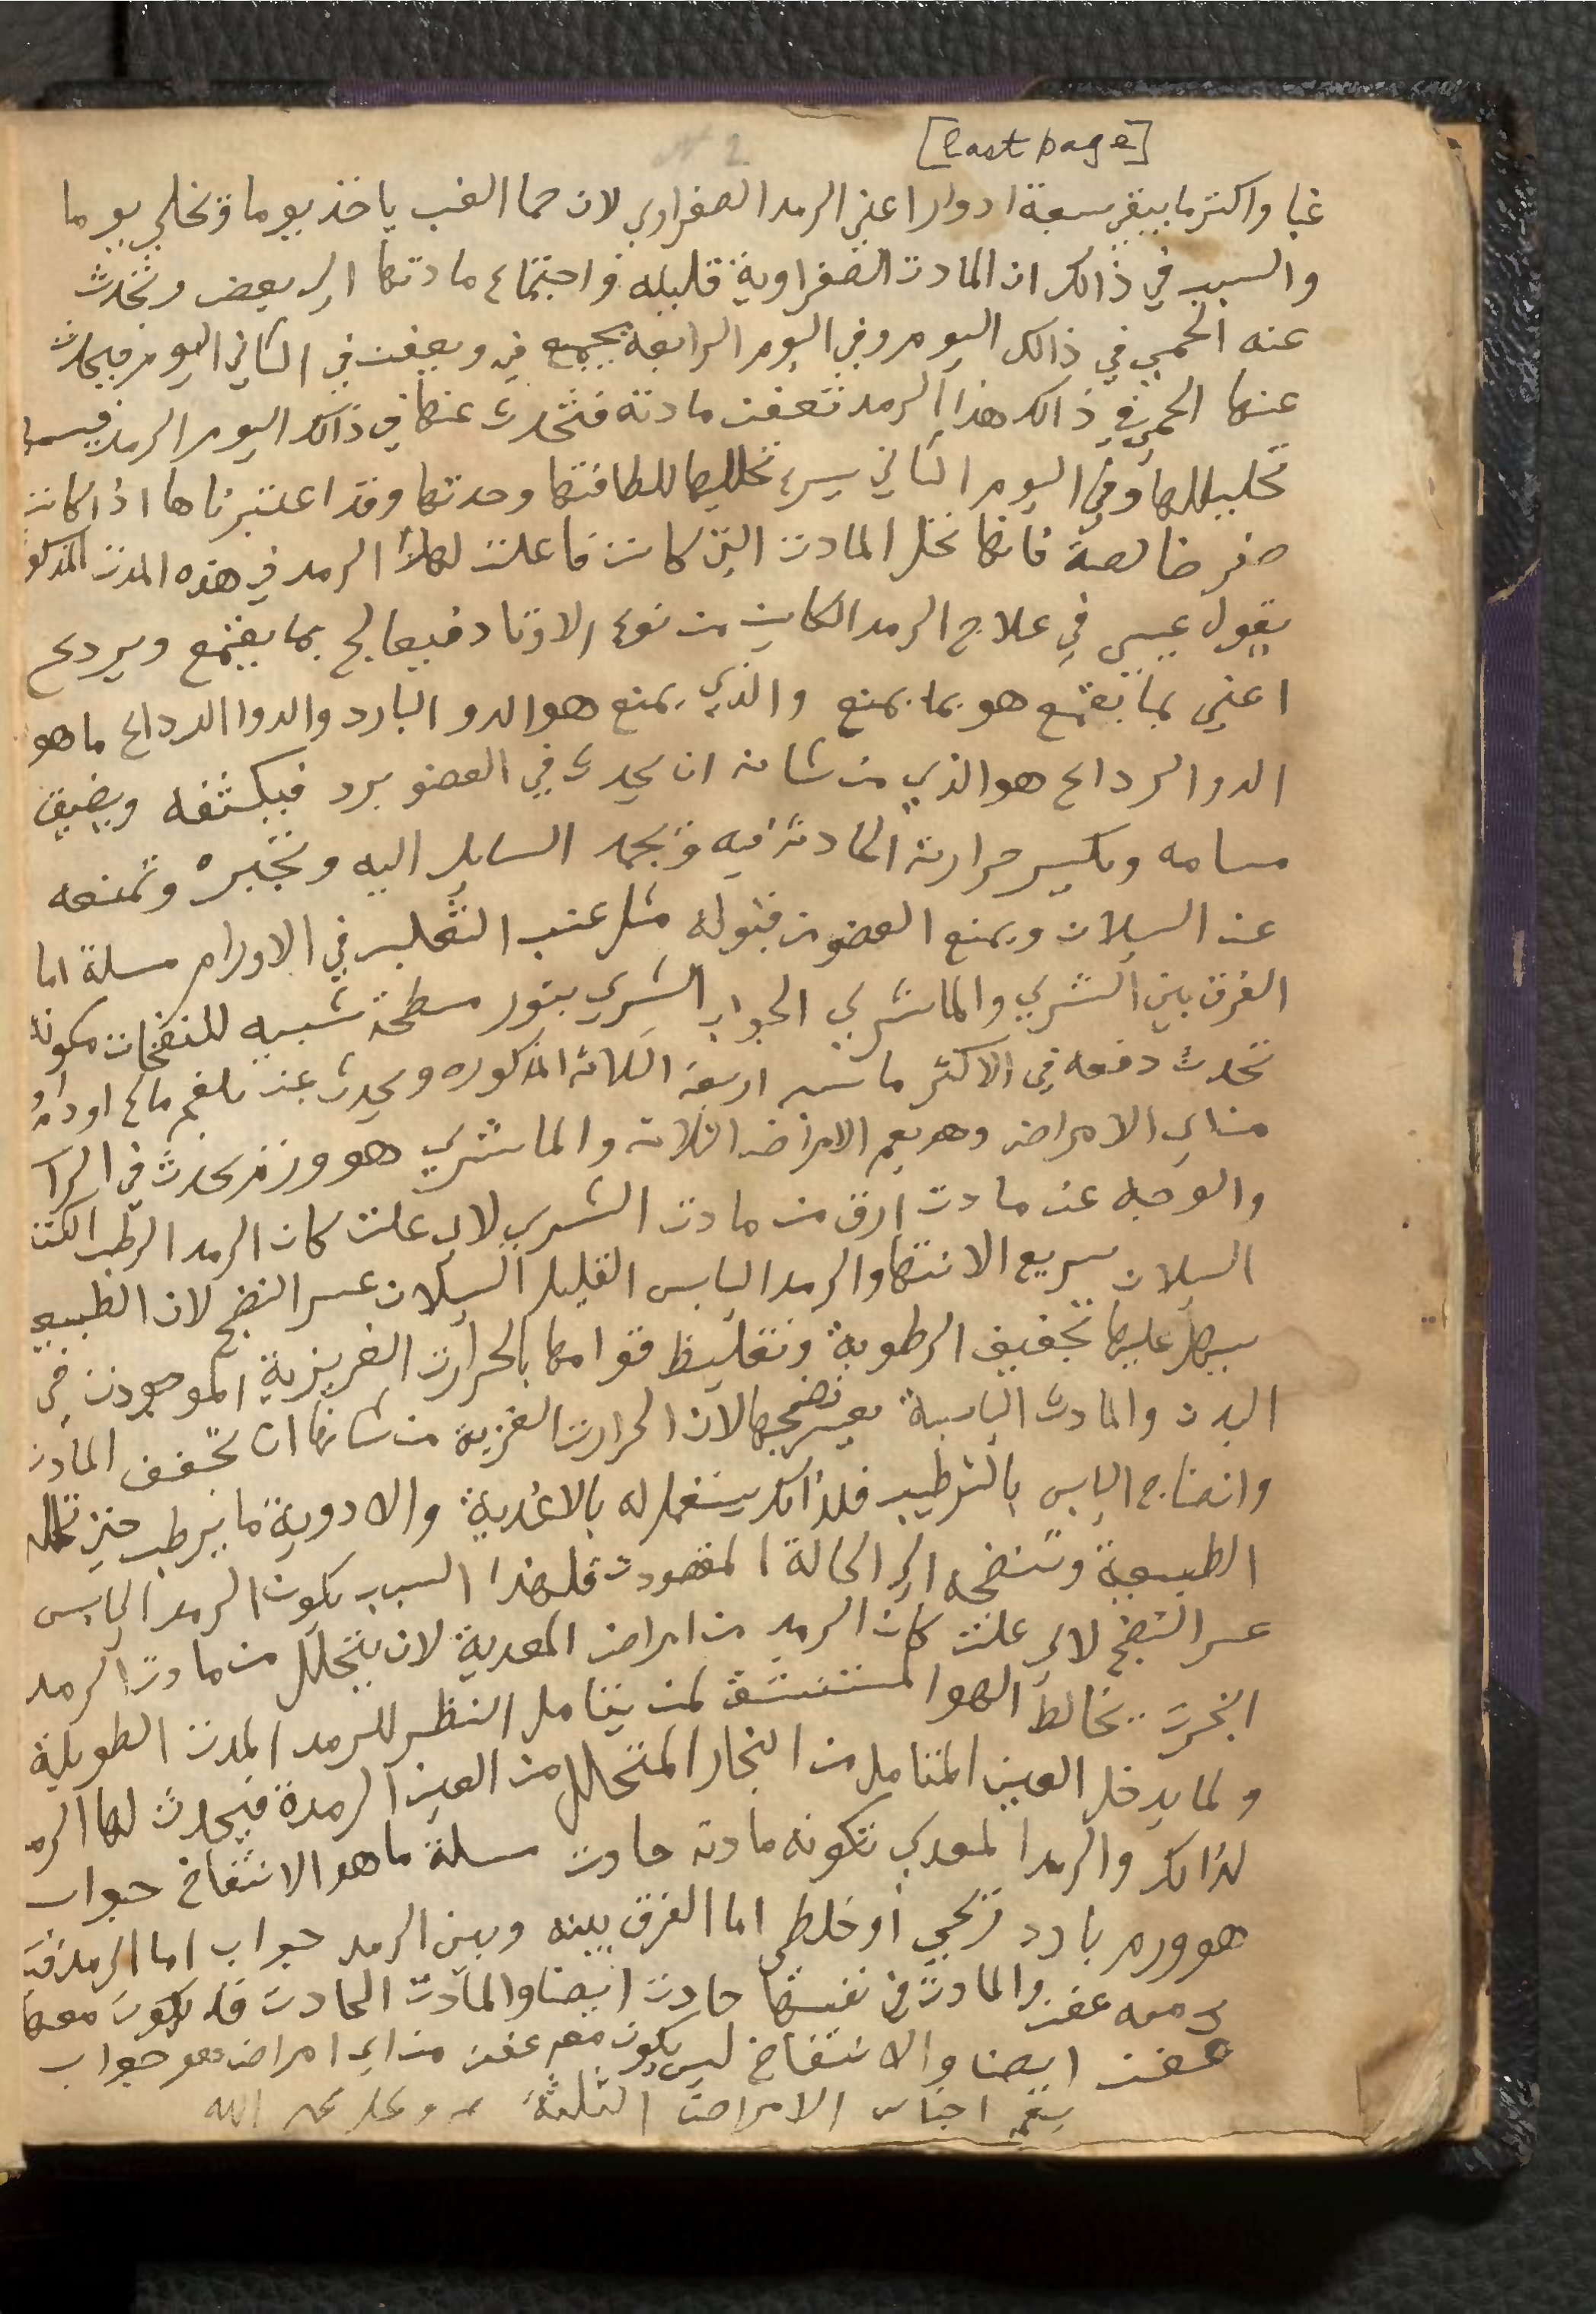 [last page]
غبا واكثر ما يبقي سبعة ادوار اعني الرمد الصفراوي لان حما الغب ياخذ يوما وتخلي يوما
والسبب في ذالك ان المادت الصفراوية قليله فاجتماع مادتها الي بعض وتحدث
عنه الحمي في ذالك اليوم وفي اليوم الرابعة يجمع في ويعفن في الثاني اليوم فيحدث
عنها الحمي في ذالك هذا الرمد تعفن مادته فتحدث عنها في ذالك اليوم الرمد
تحليلها وفي اليوم الثاني يسرع تحليلها للطافتها وحدتها وقد اعتبرناها اذا كانت
صفر خالصة فانها تحلر المادت التي كانت فاعلت لهذا الرمد في هذه المدت المذكو
يقول عيسي في علاج الرمد الكاين من نوع الاوتاد فيعالج بما يقمع ويردع
اعني بما يقمع هو بما يمنع والذي يمنع هو الدو البارد والدوا الرداع ما هو
الدوا الرداع هو الذي من شانه ان يحدث في العضو برد فيكثفه ويضيق
مسامه ويكسر حرارت الحادثة فيه وتجمد السايل اليه وتخبره وتمنعه
عن السيلان ويمنع العضو من قبوله مثل عنب الثعلب في الاورام مسلة اما
الفرق بين الشري والماشري الجواب الشري بثور مسطحة شبيه للنفخات مكونه
تحدث دفعه في الاكثر ما اربعة الثلاثة المذكوره ويحدث عن بلغم مالح او دم
من اي الامراض وهو يعم الامراض الثلاثة والماشري هو ورم يحدث في الرا
والوجه عن مادت ارق من مادت الشري لاي علت كان الرمد الرطب الكثير
السيلان سريع الانتها والرمد اليابس القليل السيلان عسر النضج لان الطبيعي
يسهل عليها تجفيف الرطوبة وتغليظ قوامها بالحرارت الغريزية الموجودت في
البدن والمادت اليابسة يعسر نضجها لان الحرارت الغزية من شانها ان تجفف المادت
وانضاج اليابس بالترطيب فلذالك يستعمل له بالاغذية والادوية ما يرطب حتي
الطبيعية وتنضجه الي الحالة المقصودت فلهذا السبب يكون الرمد اليابس
عسر النضج لاي علت كان الرمد من امراض المعدية لان يتحلل من مادت الرمد
ابخرت تخالط الهوا المستنشق لمن يتامل النظر للرمد المدت الطويلة
ولما يدخل العين المتامل من البخار المتحلل من العين الرمدة فيحدث لها الرمد
لذالك والرمد المعدي تكونه مادته حادت مسلة ما هو الانتفاخ جواب
هو ورم بارد رخجي او خلطي اما الفرق بينه وبين الرمد جواب اما الرمد
معه عفن والمادت في نفسها حادت ايضا والمادت الحادت قد يكون معها
عفن ايضا والانتفاخ ليس يكون معه عفن من اي امراض هو جواب
يعم اجناس الامراض الثلثة